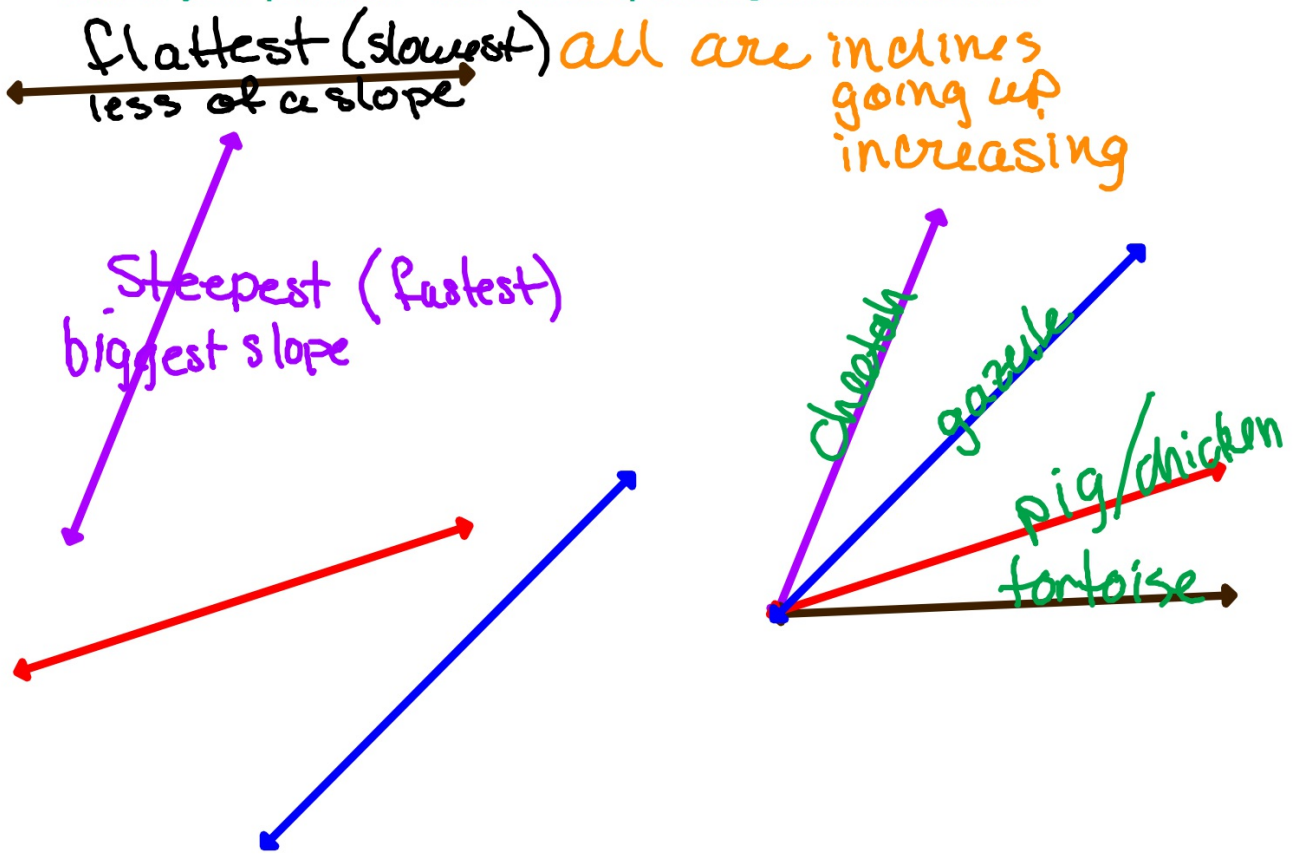 flattest (slowest)
less of a slope
all are inclines
going up
increasing
Steepest (fastest)
biggest slope
cheetah
gazelle
pig/chicken
tortoise